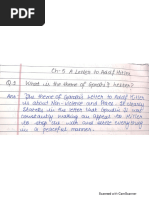 Ch-5 A Letter to Adolf Hitler
Q.1 What is the theme of Gandhi's Letter?
Ans The theme of Gandhi's Letter to Adolf Hitler
is about Non-violence and Peace. It clearly
that Gandhi is
constantly making an appeal to Hitler
to stop the war and settle everything
in a peaceful manner.
Scanned with CamScanner